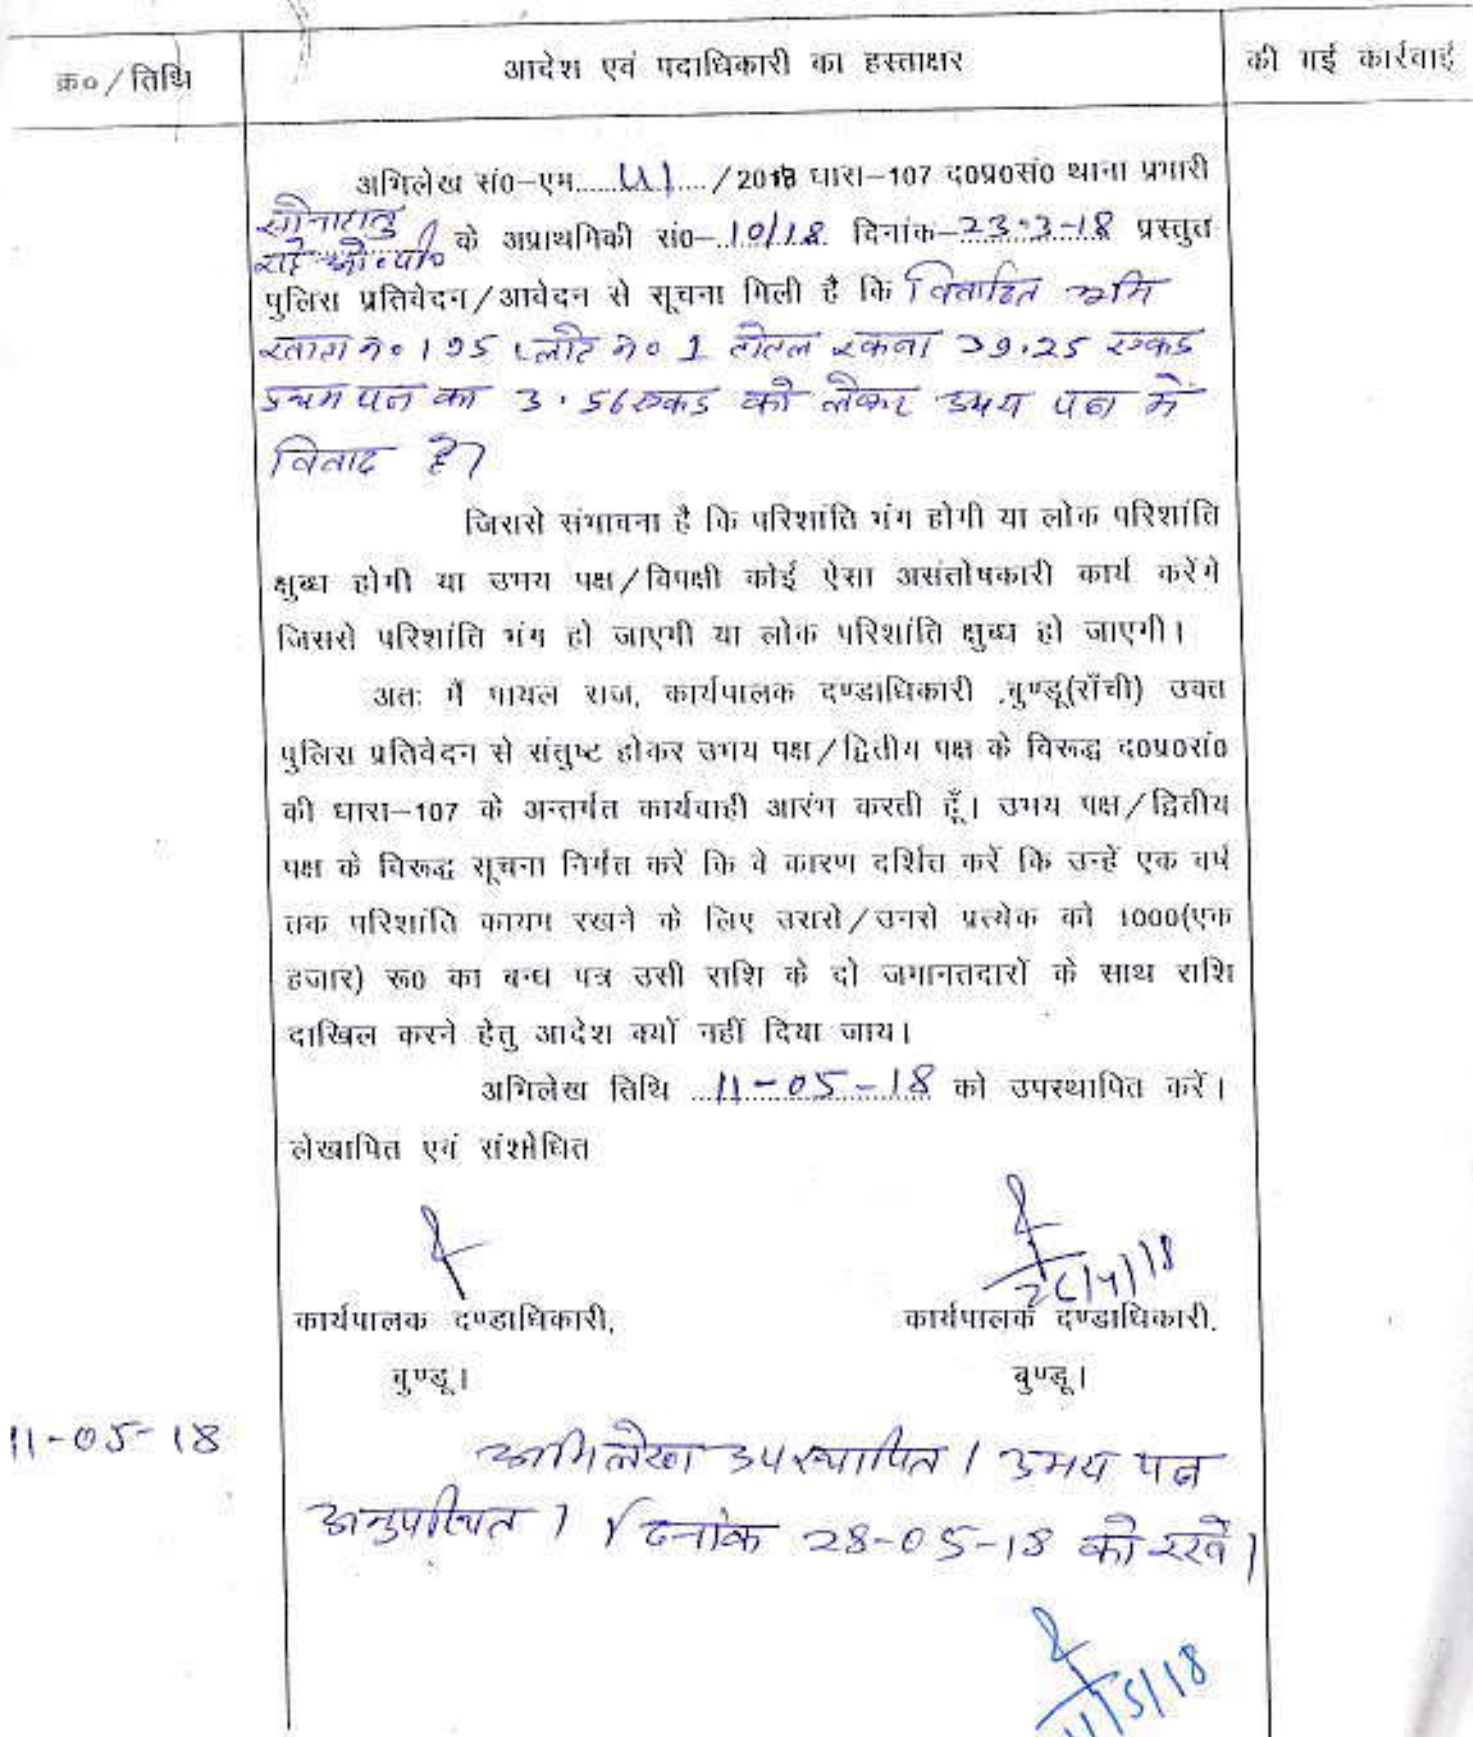 क्र०/तिथि
आदेश एवं पदाधिकारी का हस्ताक्षर
की गई कार्रवाई
अभिलेख सं०-एम...... 41 ..../2018 धारा-107 द०प्र०सं० थाना प्रभारी
सोनाहातु
राहे ओ०पी० के अप्राथमिकी सं०-10/18 दिनांक-23.3-18 प्रस्तुत
पुलिस प्रतिवेदन/आवेदन से सूचना मिली है कि विवादित भूमि
खाता नं० 195 प्लॉट नं० 1 टोटल रकबा 39.25 एकड़
प्रथम पक्ष का 3.56 एकड़ को लेकर उभय पक्ष में
विवाद है।
जिससे संभावना है कि परिशांति भंग होगी या लोक परिशांति
क्षुब्ध होगी या उभय पक्ष/विपक्षी कोई ऐसा असंतोषकारी कार्य करेंगे
जिससे परिशांति भंग हो जाएगी या लोक परिशांति क्षुब्ध हो जाएगी।
अतः मैं पायल राज, कार्यपालक दण्डाधिकारी ,बुण्डू(राँची) उक्त
पुलिस प्रतिवेदन से संतुष्ट होकर उभय पक्ष/द्वितीय पक्ष के विरूद्ध द०प्र०सं०
की धारा-107 के अन्तर्गत कार्यवाही आरंभ करती हूँ। उभय पक्ष/द्वितीय
पक्ष के विरूद्ध सूचना निर्गत करें कि वे कारण दर्शित करें कि उन्हें एक वर्ष
तक परिशांति कायम रखने के लिए उससे/उनसे प्रत्येक को 1000(एक
हजार) रू० का बन्ध पत्र उसी राशि के दो जमानतदारों के साथ राशि
दाखिल करने हेतु आदेश क्यों नहीं दिया जाय।
अभिलेख तिथि 11-05-18 को उपस्थापित करें।
लेखापित एवं संशोधित
26/4/18
कार्यपालक दण्डाधिकारी, कार्यपालक दण्डाधिकारी.
बुण्डू। बुण्डू।
11-05-18 अभिलेख उपस्थापित। उभय पक्ष
अनुपस्थित। दिनांक 28-05-18 को रखें।
11/5/18